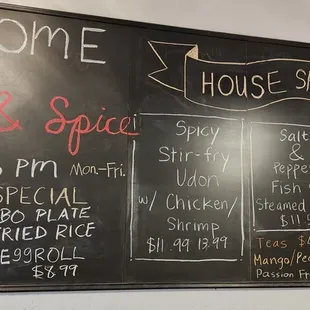 OME
& Spice
PM Mon-Fri.
SPECIAL
BO PLATE
FRIED RICE
EGGROLL
$8.99
HOUSE
Spicy
Stir-fry
Udon
w/ Chicken/
Shrimp
$11.99 13.99
Salt
&
Peppe
Fish
Steamed
$11.
TEAS $
Mango/Pe
Passion Fr